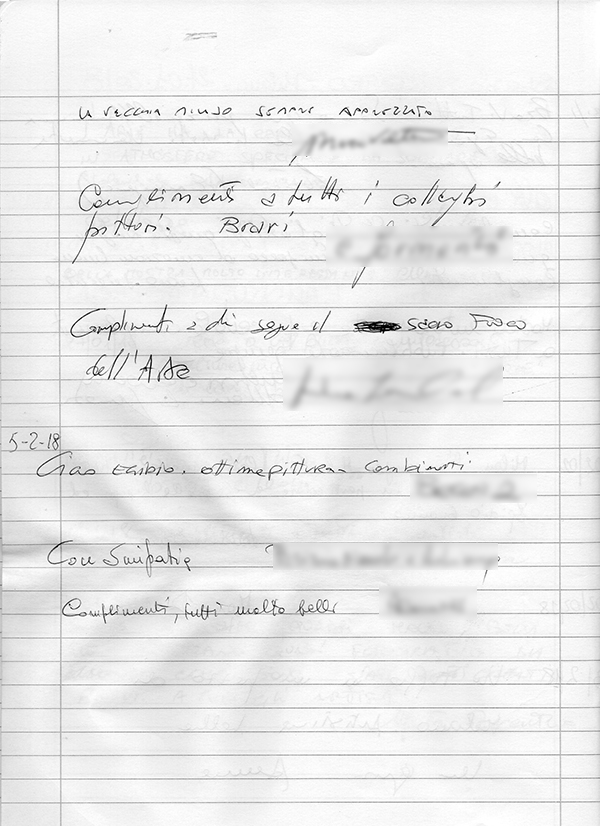 LA VECCHIA MILANO SEMPRE APPREZZATO
Complimenti a tutti i colleghi
pittori. Bravi
Complimenti a chi segue il SACRO FUOCO
dell'Arte
5-2-18
Ciao ottime pittura
Con Simpatia
Complimenti, tutti molto belli